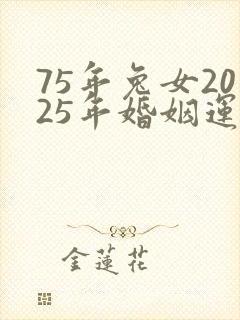 75年兔女20
25年婚姻運
金蓮花